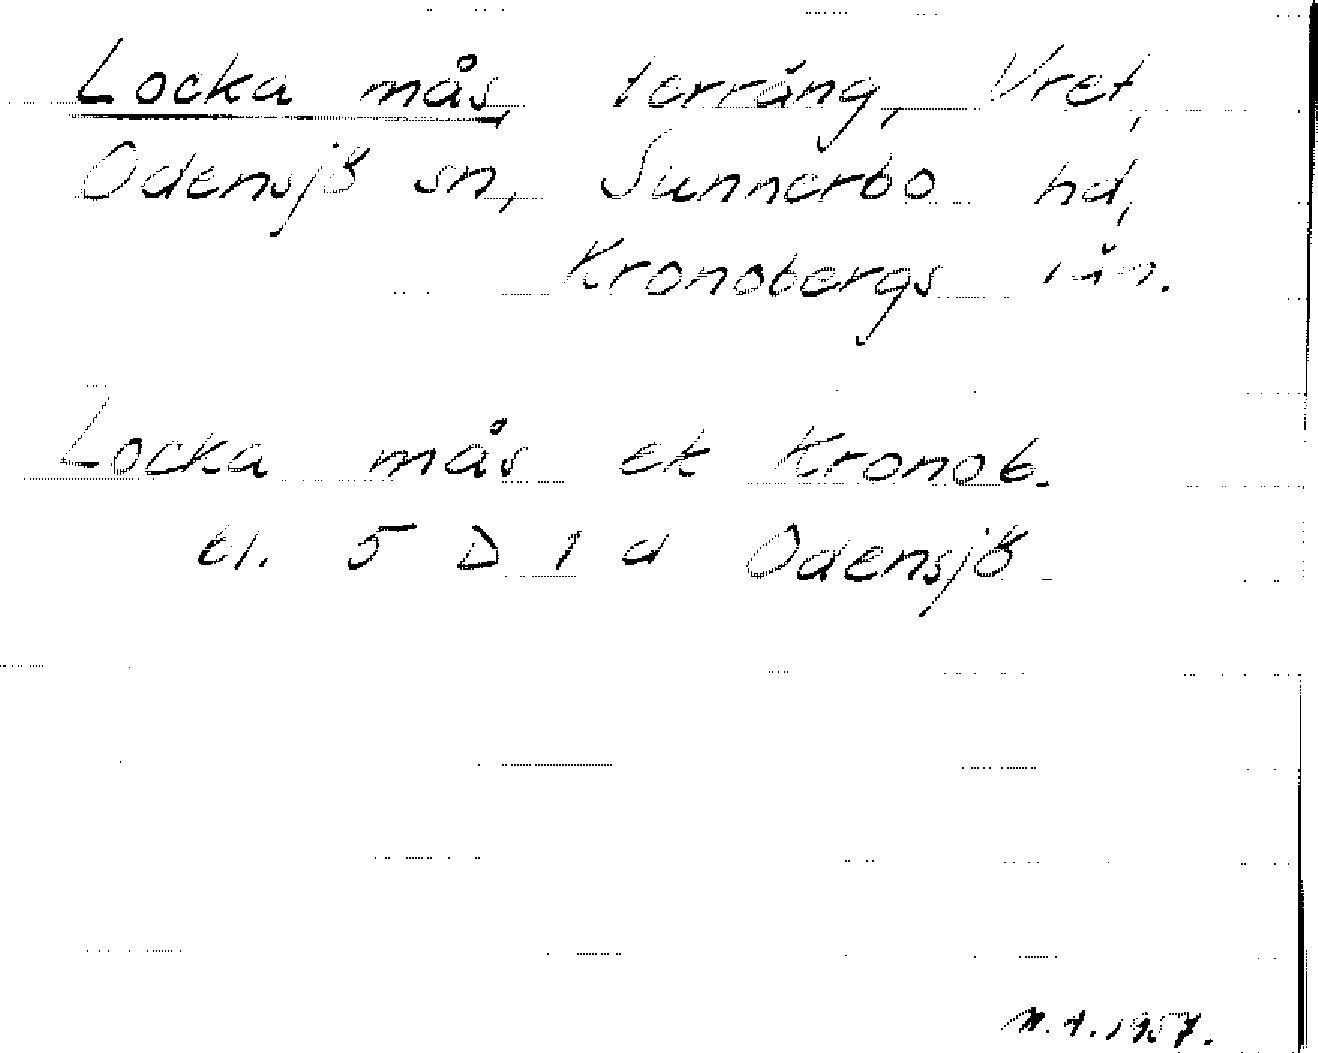 Locka mås, terräng, Vret,
Odensjö sn, Sunnerbo hd,
Kronobergs län.
Locka mås ek Kronob.
bl. 5 D 1 d Odensjö
1957.